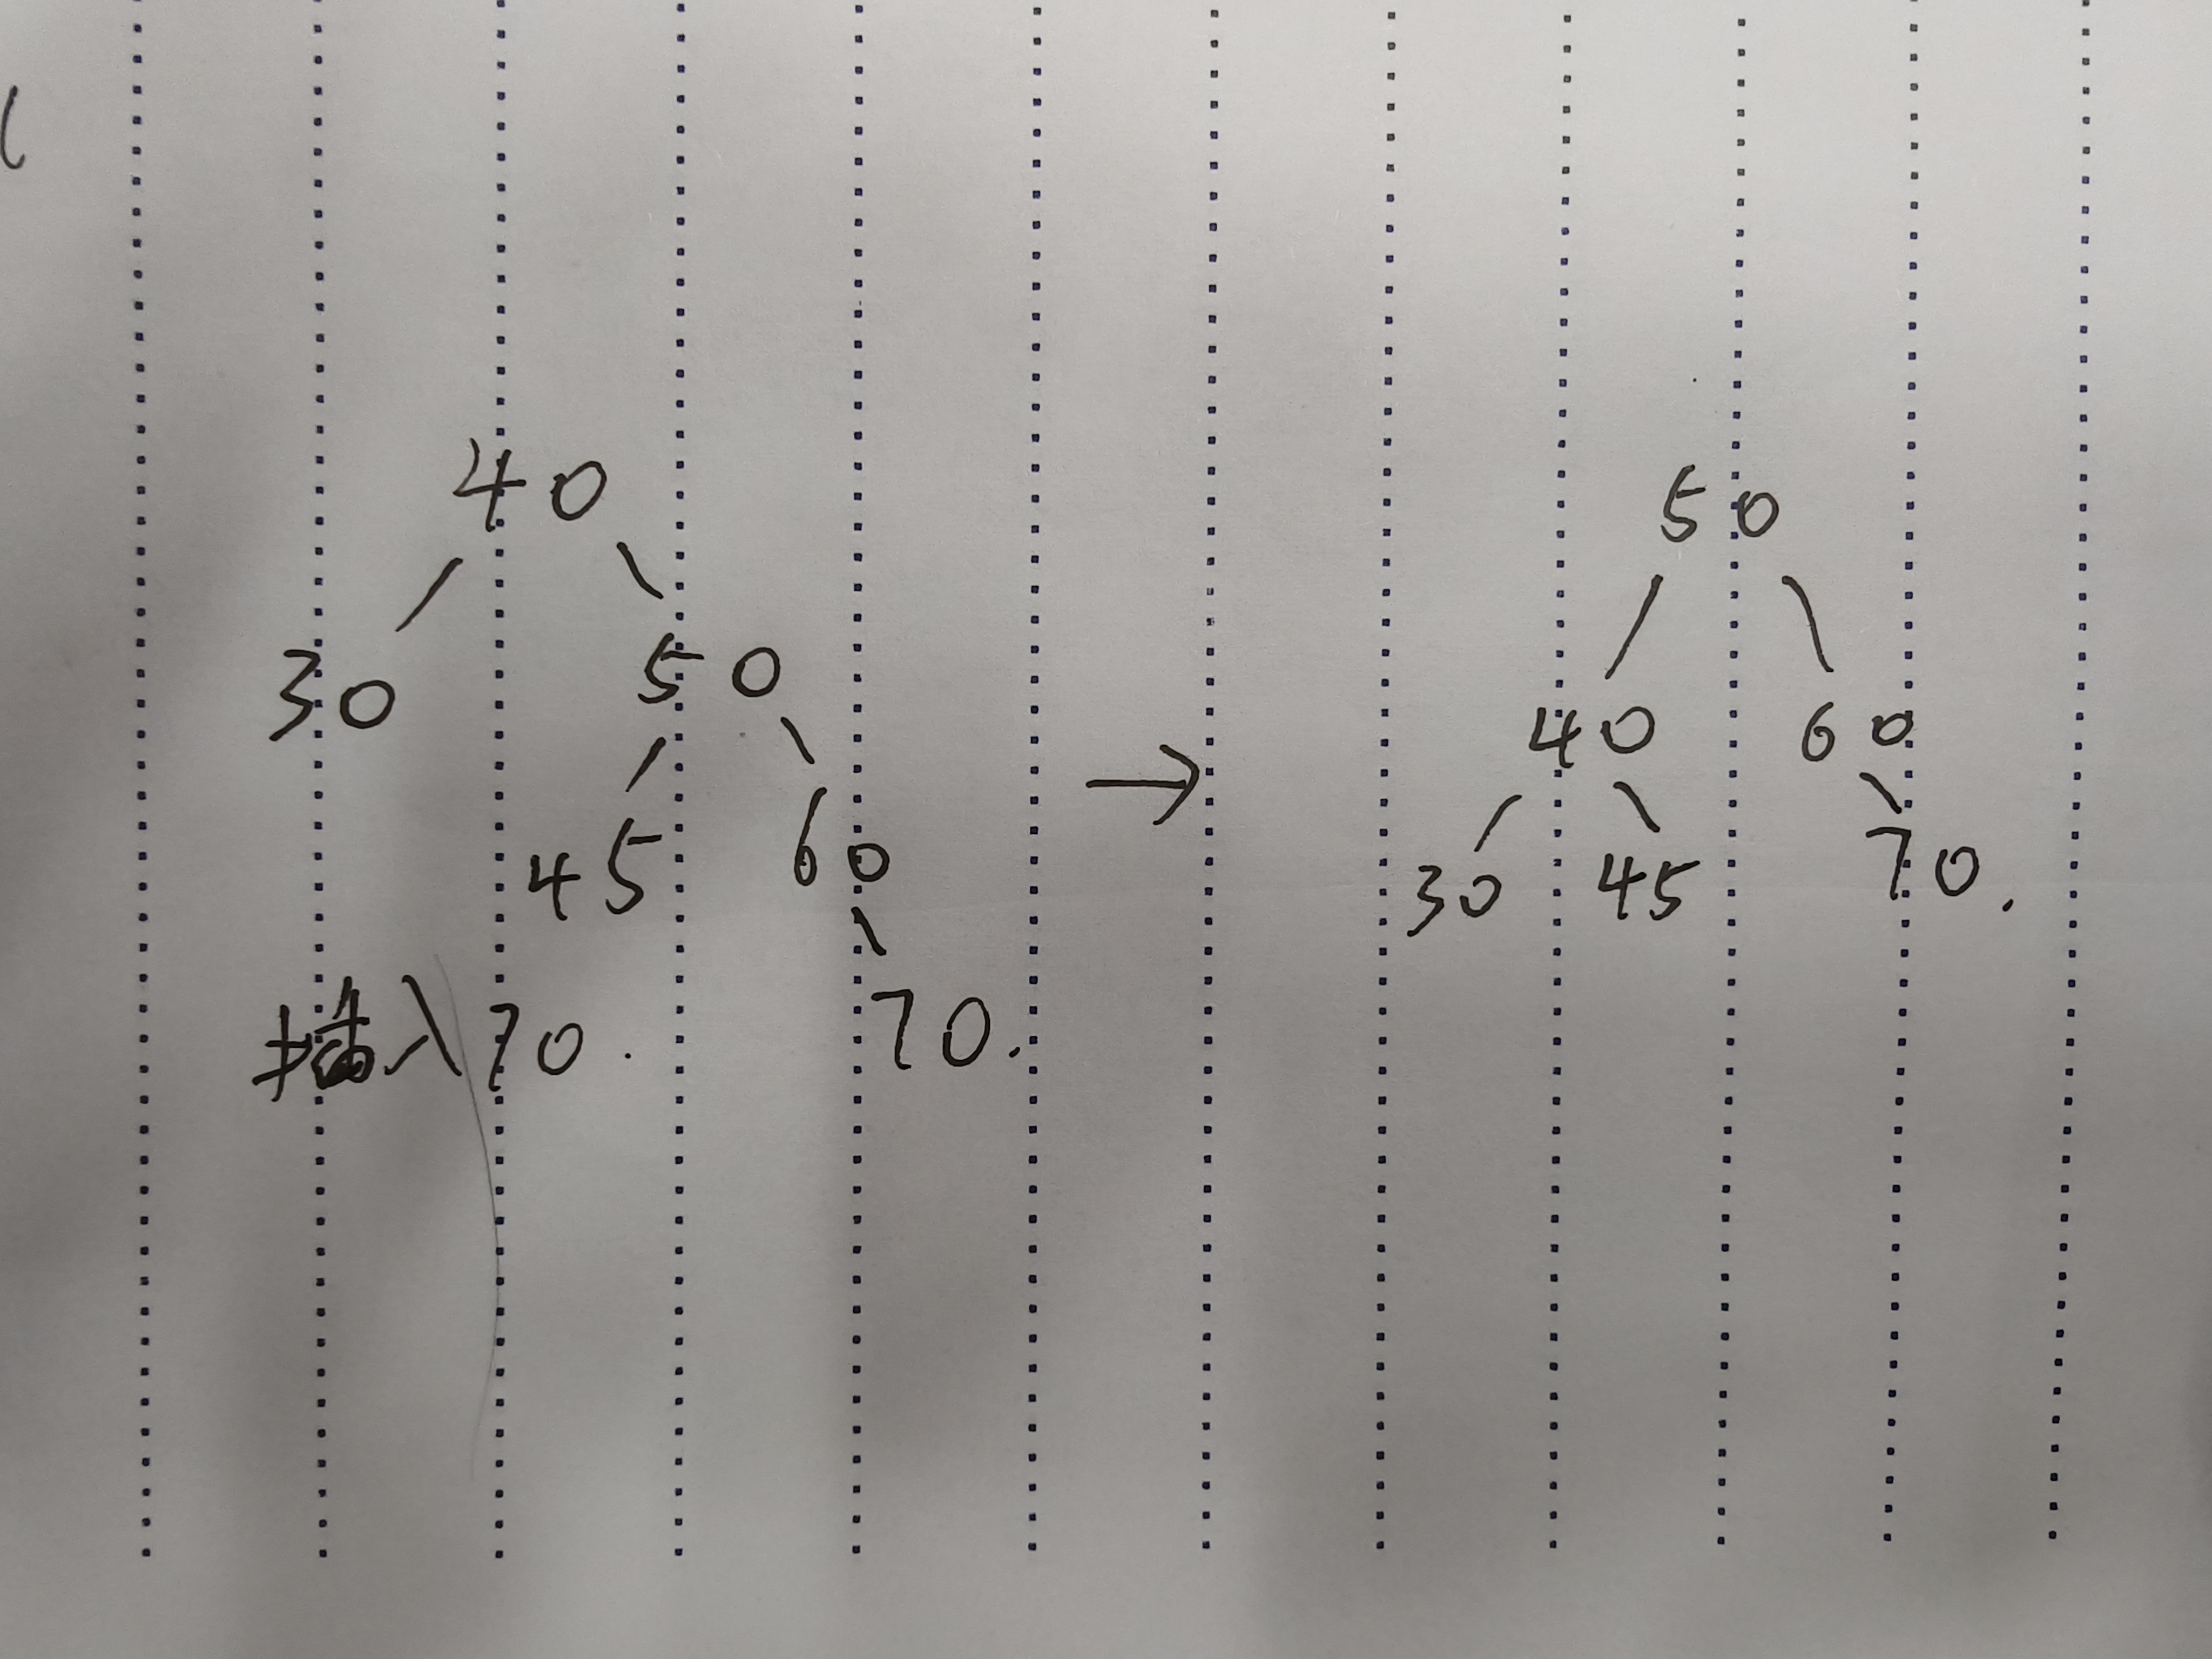 40
30 50
45 60
插入70. 70.
→
50
40 60
30 45 70.